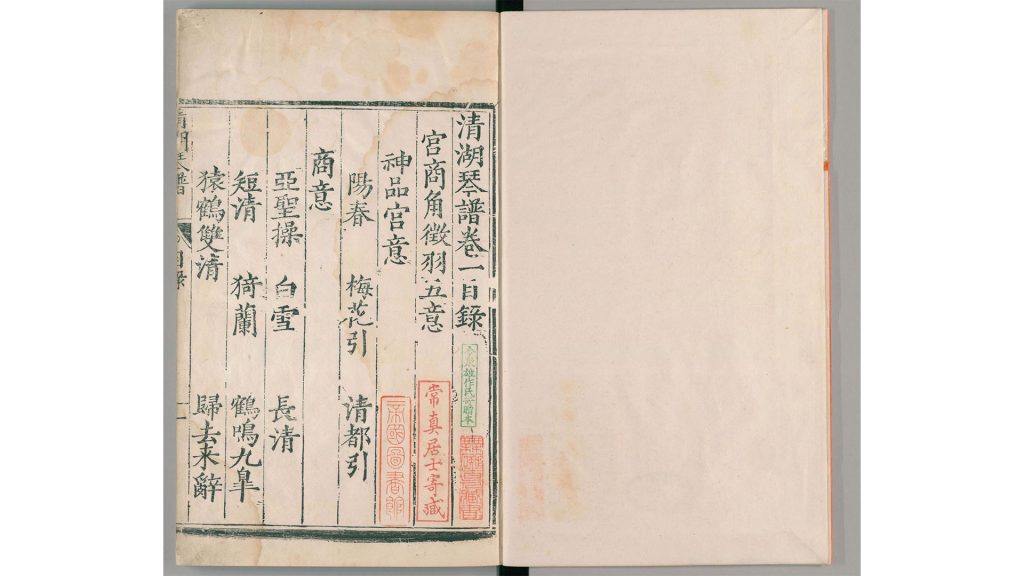 清湖琴譜卷一目錄
宮商角徵羽五意
神品宮意
陽春 梅花引 清都引
商意
亞聖操 白雪 長清
短清 猗蘭 鶴鳴九皐
猿鶴雙清 歸去来辭
清湖琴譜 目錄 一
常真居士寄藏
帝國圖書館